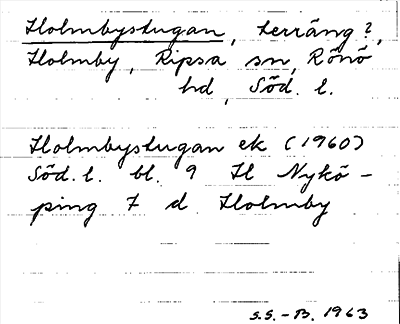 Holmbystugan, terräng?,
Holmby, Ripsa sn, Rönö
hd, Söd. l.
Holmbystugan ek (1960)
Söd. l. bl. 9 H Nykö-
ping 7 d Holmby
S.S.-B. 1963